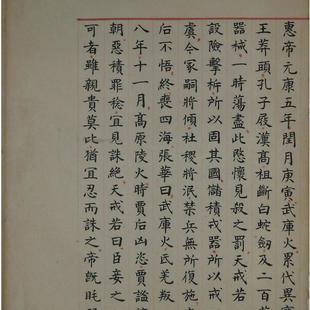 惠帝元康五年閏月庚寅武庫火累代異寶
王莽頭孔子屐漢高祖斷白蛇劔及二百萬
器械一時蕩盡此愍懷見殺之罰天戒若
設險擊柝所以固其國儲積戎器所以戒
虞今冢嗣將傾社稷將泯禁兵無所復施
后不悟終喪四海張華曰武庫火氐羌叛
八年十一月高原陵火時賈后凶恣賈謐
朝惡積罪稔宜見誅絕天戒若曰臣妾之
可者雖親貴莫比猶宜忍而誅之帝旣眊